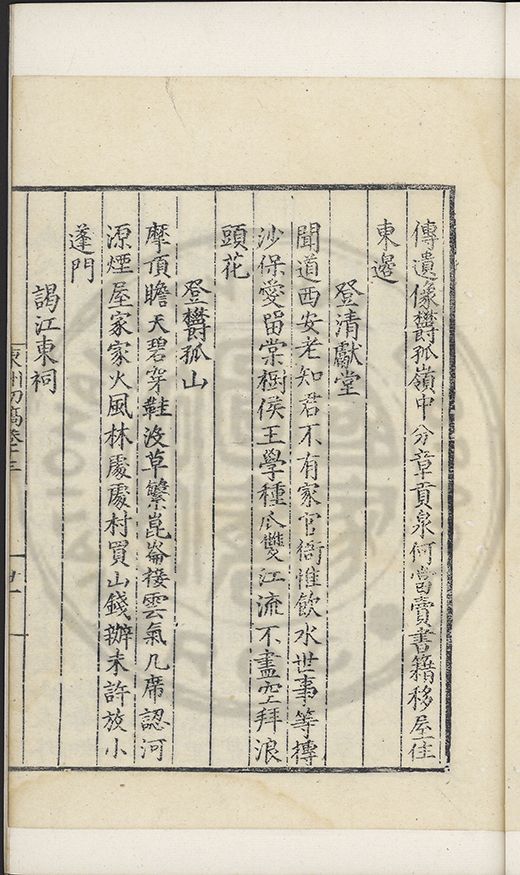 傳遺像欝孤嶺中分章貢泉何當賣書籍移屋住
東邊
登清獻堂
聞道西安老知君不有家官衙惟飲水世事等摶
沙保愛留棠樹侯王學種瓜雙江流不盡空拜浪
頭花
登欝孤山
摩頂瞻天碧穿鞋没草繁崑崙接雲氣几席認河
源煙屋家家火風林處處村買山錢辦未許放小
蓬門
謁江東祠
東州初稿卷十三